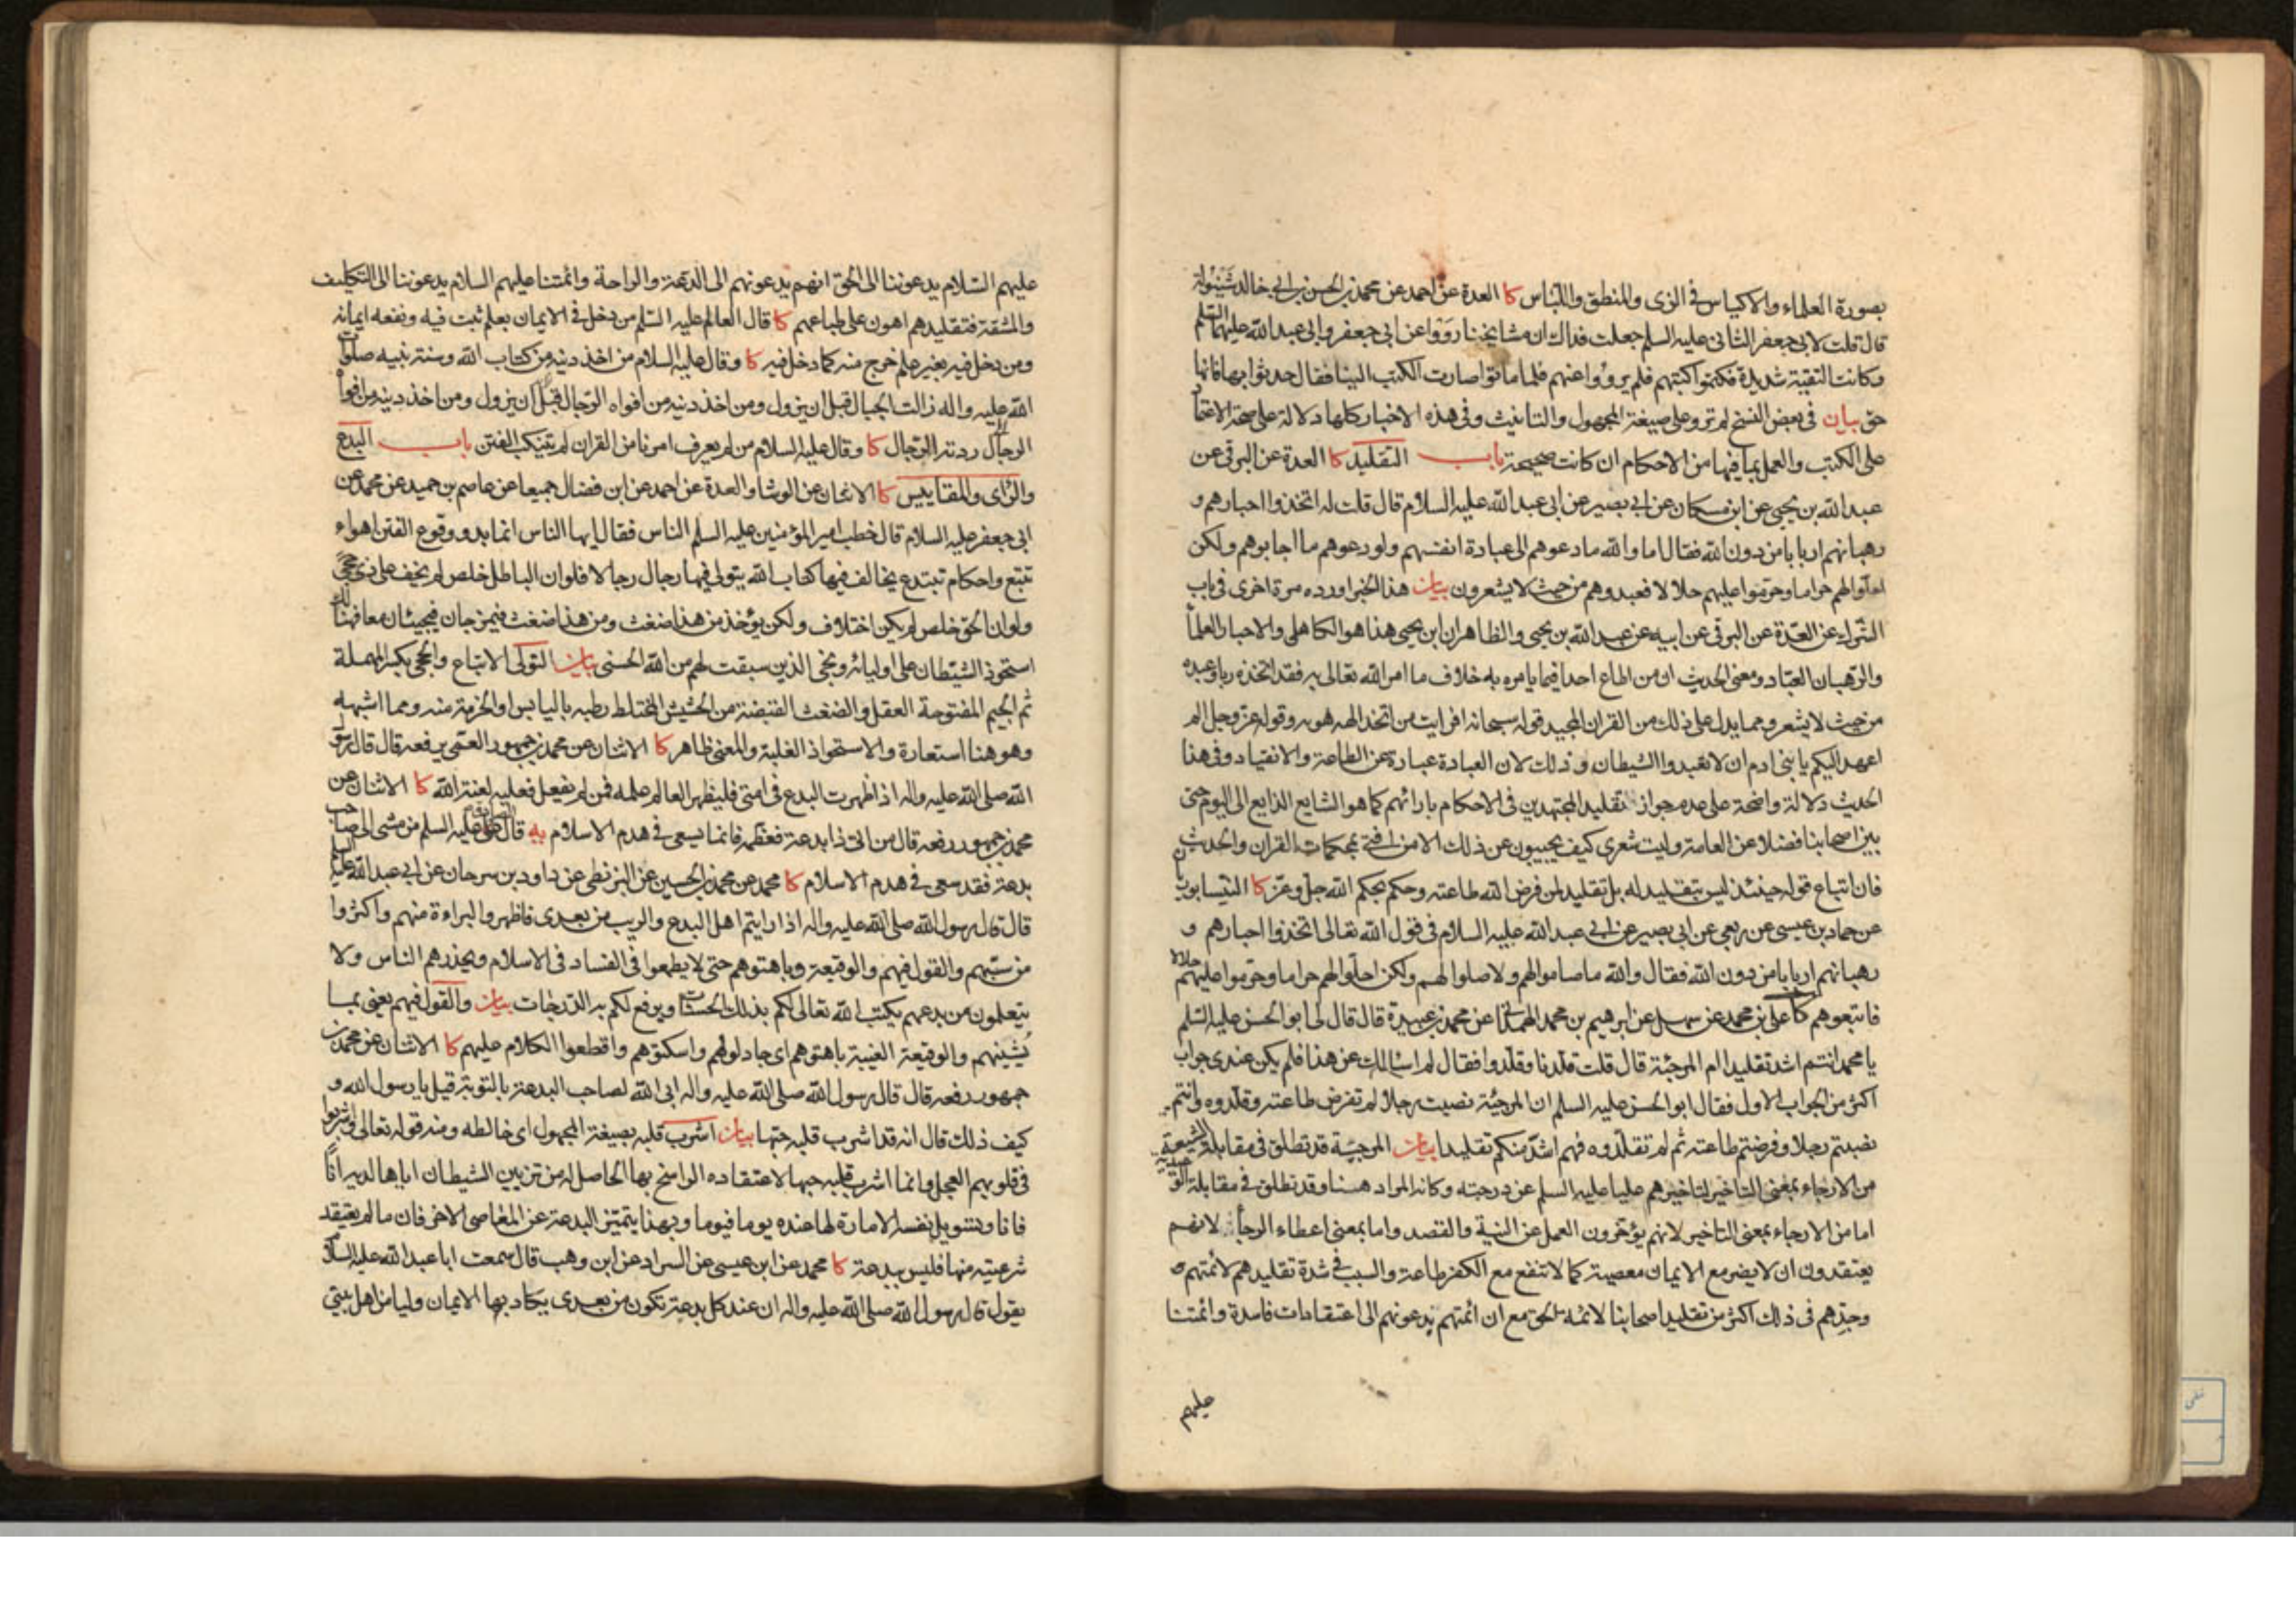 بصورة العلماء والاكياس فى الزى والمنطق واللباس كا العدة عن احمد عن محمد بن الحسن بن ابى خالد شَيْنُولة
قال قلت لابى جعفر الثانى عليه السلم جعلت فداك ان مشايخنا رَوَوْا عن ابى جعفر وابى عبد الله عليهما السلم
وكانت التقية شديدة فكتموا كتبهم فلم يرووا عنهم فلما ماتوا صارت الكتب الينا فقال حدثوا بها فانها
حق بيان فى بعض النسخ لم ترو على صيغة المجهول والتانيث وفى هذه الاخبار كلها دلالة على صحة الاعتما
على الكتب والعمل بما فيها من الاحكام ان كانت صحيحة باب التقليد كا العدة عن البرقى عن
عبد الله بن يحيى عن ابن مسكان عن ابى بصير عن ابى عبد الله عليه السلام قال قلت له اتخذوا احبارهم و
رهبانهم اربابا من دون الله فقال اما والله ما دعوهم الى عبادة انفسهم ولو دعوهم ما اجابوهم ولكن
احلوا لهم حراما وحرموا عليهم حلالا فعبدوهم من حيث لا يشعرون بيان هذا الخبر اورده مرة اخرى فى باب
الشرك عن العدة عن البرقى عن ابيه عن عبد الله بن يحيى والظاهر ان ابن يحيى هذا هو الكاهلى والاحبار العلما
والرهبان العباد ومعنى الحديث ان من اطاع احدا فيما يامره به خلاف ما امر الله تعالى به فقد اتخذه ربا وعبده
من حيث لا يشعر ومما يدل على ذلك من القران المجيد قوله سبحانه افرايت من اتخذ الهه هويه وقوله عز وجل الم
اعهد اليكم يا بنى ادم ان لا تعبدوا الشيطان وذلك لان العبادة عبارة عن الطاعة والانقياد وفى هذا
الحديث دلالة واضحة على عدم جواز تقليد المجتهدين فى الاحكام بارائهم كما هو الشايع الذايع الى اليوم حتى
بين اصحابنا فضلا عن العامة وليت شعرى كيف يجيبون عن ذلك الا من افتى بمحكمات القران والحديث
فان اتباع قوله حينئذ ليس بتقليد له بل تقليد لمن فرض الله طاعته وحكم بحكم الله جل وعز كا النيسابوريان
عن حماد بن عيسى عن ربعى عن ابى بصير عن ابى عبد الله عليه السلام فى قول الله تعالى اتخذوا احبارهم و
رهبانهم اربابا من دون الله فقال والله ما صاموا لهم ولا صلوا لهم ولكن احلوا لهم حراما وحرموا عليهم حلالا
فاتبعوهم كا على بن محمد عن سهل عن ابرهيم بن محمد الهمدانى عن محمد بن عبيدة قال قال لى ابو الحسن عليه السلم
يا محمد انتم اشد تقليدا ام المرجئة قال قلت قلدنا وقلدوا فقال لم اسالك عن هذا فلم يكن عندى جواب
اكثر من الجواب الاول فقال ابو الحسن عليه السلم ان المرجئة نصبت رجلا لم تفرض طاعته وقلدوه وانتم
نصبتم رجلا وفرضتم طاعته ثم لم تقلدوه فهم اشد منكم تقليدا بيان المرجئة قد تطلق فى مقابلة الشيعة
من الارجاء بمعنى التاخير لتاخيرهم عليا عليه السلم عن درجته وكانه المراد هنا وقد تطلق فى مقابلة الوعيدية
اما من الارجاء بمعنى التاخير لانهم يؤخرون العمل عن النية والقصد واما بمعنى اعطاء الرجأ لانهم
يعتقدون ان لا يضر مع الايمان معصية كما لا تنفع مع الكفر طاعة والسبب فى شدة تقليدهم لائمتهم
وجدهم فى ذلك اكثر من تقليد اصحابنا لائمة الحق مع ان ائمتهم يدعونهم الى اعتقادات فاسدة وائمتنا
عليهم
عليهم السلام يدعوننا الى الحق انهم يدعونهم الى الدعة والراحة وائمتنا عليهم السلام يدعوننا الى التكليف
والمشقة فتقليدهم اهون على طباعهم كا قال العالم عليه السلم من دخل فى الايمان بعلم ثبت فيه ونفعه ايمانه
ومن دخل فيه بغير علم خرج منه كما دخل فيه كا وقال عليه السلام من اخذ دينه من كتاب الله وسنة نبيه صلوات
الله عليه واله زالت الجبال قبل ان يزول ومن اخذ دينه من افواه الرجال قبل ان يزول ومن اخذ دينه من افواه
الرجال ردته الرجال كا وقال عليه السلام من لم يعرف امرنا من القران لم يتنكب الفتن باب البدع
والراى والمقاييس كا الاثنان عن الوشا والعدة عن احمد عن ابن فضال جميعا عن عاصم بن حميد عن محمد عن
ابى جعفر عليه السلام قال خطب امير المؤمنين عليه السلم الناس فقال ايها الناس انما بدو وقوع الفتن اهواء
تتبع واحكام تبتدع يخالف فيها كتاب الله يتولى فيها رجال رجالا فلو ان الباطل خلص لم يخف على ذى حجى
ولو ان الحق خلص لم يكن اختلاف ولكن يؤخذ من هذا ضغث ومن هذا ضغث فيمزجان فيجيئان معا فهنالك
استحوذ الشيطان على اوليائه ونجى الذين سبقت لهم من الله الحسنى بيان التولى الاتباع والحجى بكسر المهملة
ثم الجيم المفتوحة العقل والضغث القبضة من الحشيش المختلط رطبه باليابس والحزمة منه ومما اشبهه
وهو هنا استعارة والاستحواذ الغلبة والمعنى ظاهر كا الاثنان عن محمد بن جمهور العمى يرفعه قال قال رسول
الله صلى الله عليه واله اذا ظهرت البدع فى امتى فليظهر العالم علمه فمن لم يفعل فعليه لعنة الله كا الاثنان عن
محمد بن جمهور رفعه قال من اتى ذا بدعة فعظمه فانما يسعى فى هدم الاسلام يه قال على عليه السلم من مشى الى صاحب
بدعة فقد سعى فى هدم الاسلام كا محمد عن محمد بن الحسين عن البزنطى عن داود بن سرحان عن ابى عبد الله عليه السلم
قال قال رسول الله صلى الله عليه واله اذا رايتم اهل البدع والريب من بعدى فاظهروا البراءة منهم واكثروا
من سبهم والقول فيهم والوقيعة وباهتوهم حتى لا يطمعوا فى الفساد فى الاسلام ويحذرهم الناس ولا
يتعلمون من بدعهم يكتب الله تعالى لكم بذلك الحسنات ويرفع لكم به الدرجات بيان والقول فيهم يعنى بما
يُشينهم والوقيعة الغيبة باهتوهم اى جادلوهم واسكتوهم واقطعوا الكلام عليهم كا الاثنان عن محمد بن
جمهور رفعه قال قال رسول الله صلى الله عليه واله ابى الله لصاحب البدعة بالتوبة قيل يا رسول الله و
كيف ذلك قال انه قد اشرب قلبه حبها بيان اشرب قلبه بصيغة المجهول اى خالطه ومنه قوله تعالى واشربوا
فى قلوبهم العجل وانما اشرب قلبه حبها لاعتقاده الراسخ بها الحاصل له من تزيين الشيطان اياها لديه انًا
فانا وتسويل نفسه الامارة لها عنده يوما فيوما وبهذا يتميز البدعة عن المعاصى الاخر فان ما لم يعتقد
شرعيته منها فليس ببدعة كا محمد عن ابن عيسى عن السراد عن ابن وهب قال سمعت ابا عبد الله عليه السلام
يقول قال رسول الله صلى الله عليه واله ان عند كل بدعة تكون من بعدى يكاد بها الايمان وليا من اهل بيتى